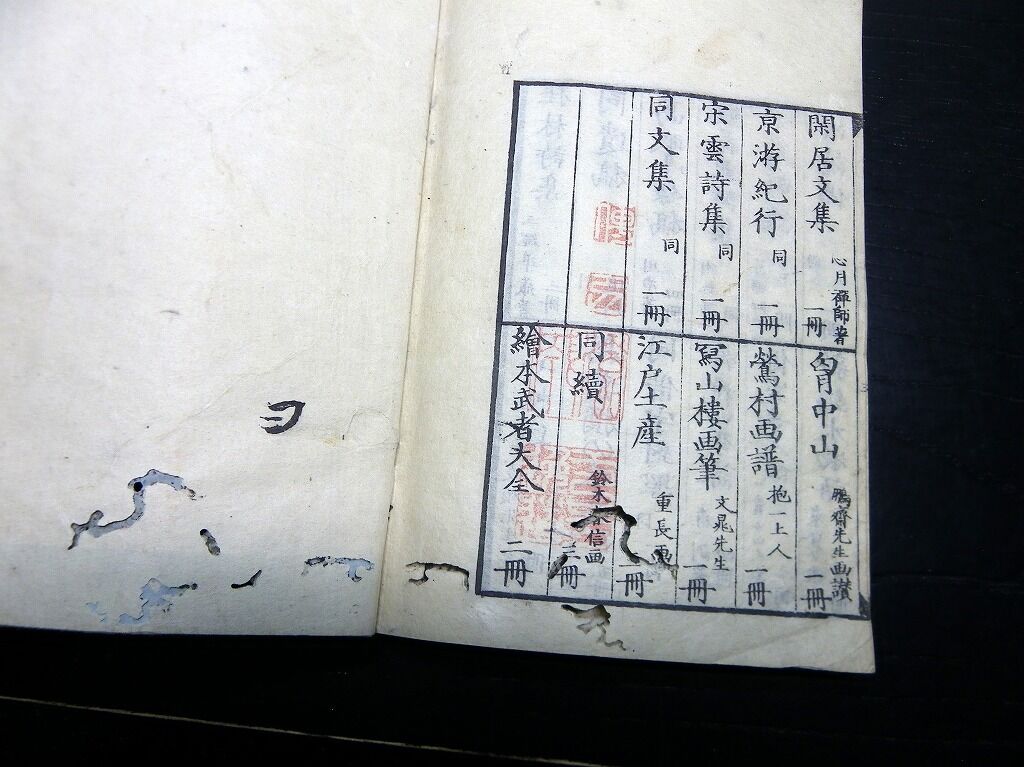 閑居文集 心月禪師著 一冊
京游紀行 同 一冊
宋雲詩集 同 一冊
同文集 同 一冊
胷中山 鵬齋先生画讃 一冊
鶯村画譜 抱一上人 一冊
寫山樓画筆 文晁先生 一冊
江戸土産 重長画 一冊
同續 鈴木春信画 三冊
繪本武者大全 二冊